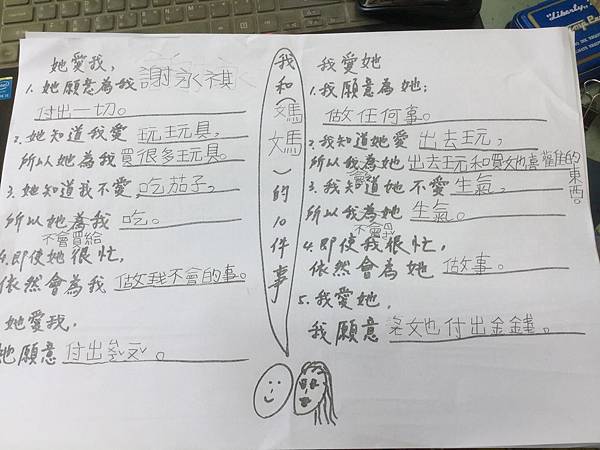 Liberty
她愛我,
1. 她願意為我謝永祺
付出一切。
2. 她知道我愛玩玩具,
所以她為我買很多玩具。
3. 她知道我不愛吃茄子,
所以她為我吃。
不會買給
4. 即使她很忙,
依然會為我做我不會的事。
她愛我,
她願意付出
我和媽媽(的10件事
我愛她
1. 我願意為她:
做任何事。
2. 我知道她愛出去玩,
所以我為她出去玩和買她喜歡的東西。
3. 我知道她不愛生氣,
所以我為她生氣。
不會
4. 即使我很忙,
依然會為她做事。
5. 我愛她,
我願意為她付出金錢。